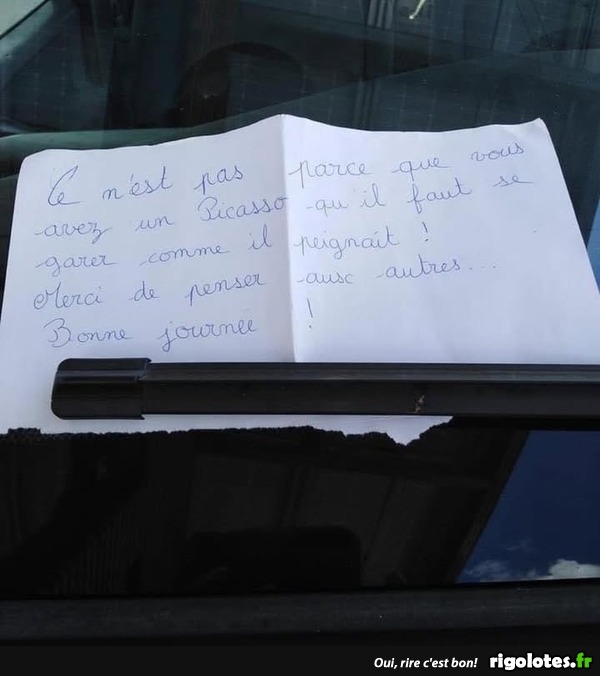 Ce n'est pas parce que vous
avez un Picasso qu'il faut se
garer comme il peignait !
Merci de penser aux autres...
Bonne journée !
Oui, rire c'est bon! rigolotes.fr